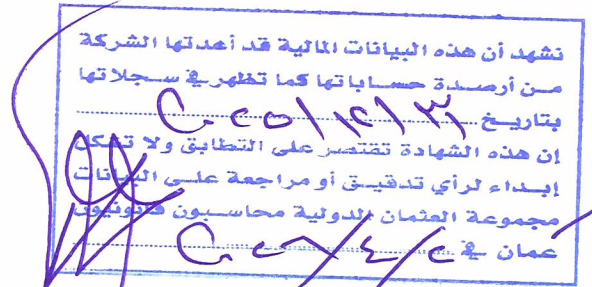 نشهد أن هذه البيانات المالية قد أعدتها الشركة
من أرصدة حساباتها كما تظهر في سجلاتها
بتاريخ ٣١/١٢/٢٠٢٥
إن هذه الشهادة تقتصر على التطابق ولا تشكل
إبداء لرأي تدقيق أو مراجعة على البيانات
مجموعة العثمان الدولية محاسبون قانونيون
عمان في ٢/٤/٢٠٢٦